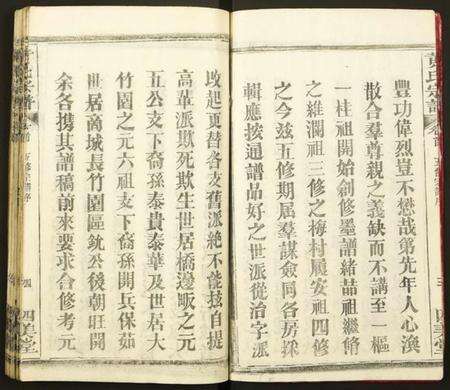 豐功偉烈豈不懋哉第先年人心渙
散合羣尊親之義缺而不講至一樞
一柱祖開始創修墨譜緒品祖繼脩
之維瀾祖三修之梅村展安祖四修
之今茲五修期届羣謀僉同各房採
輯應按通譜品好之世派從治字派
四美堂
改起更替各支舊派絕不能擅自提
高華派欺死欺生世居橋邊畈之元
五公支下裔孫泰貴泰華及世居大
竹園之元六祖支下裔孫開兵保如
世居商城長竹園區銃公後朝旺開
余各携其譜稿前來要求合修考元
四
四美堂